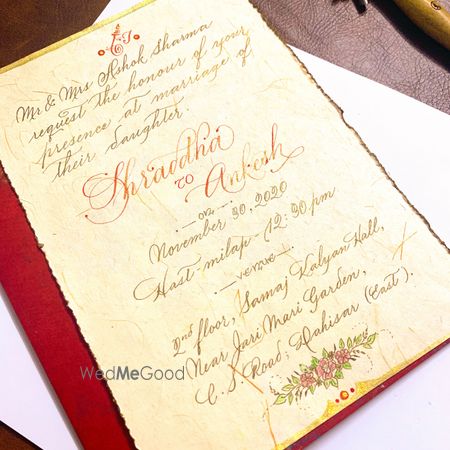 Mr & Mrs Ashok Sharma
request the honour of your
presence at marriage of
their daughter.
Shraddha
to
Ankesh
on
November 30, 2020
Hast milap - 12:30 pm
venue
2nd floor, Samaj Kalyan Hall,
Near Jari Mari Garden,
C.S. Road, Dahisar (East).
WedMeGood